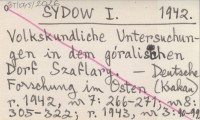 SYDOW I. 1942.
Volkskundliche Untersuchun-
gen in dem góralischen
Dorf Szaflary. — Deutsche
Forschung im Osten (Krakau)
r. 1942, nr 7: 266-271, nr 8:
305-322; r. 1943, nr 3: